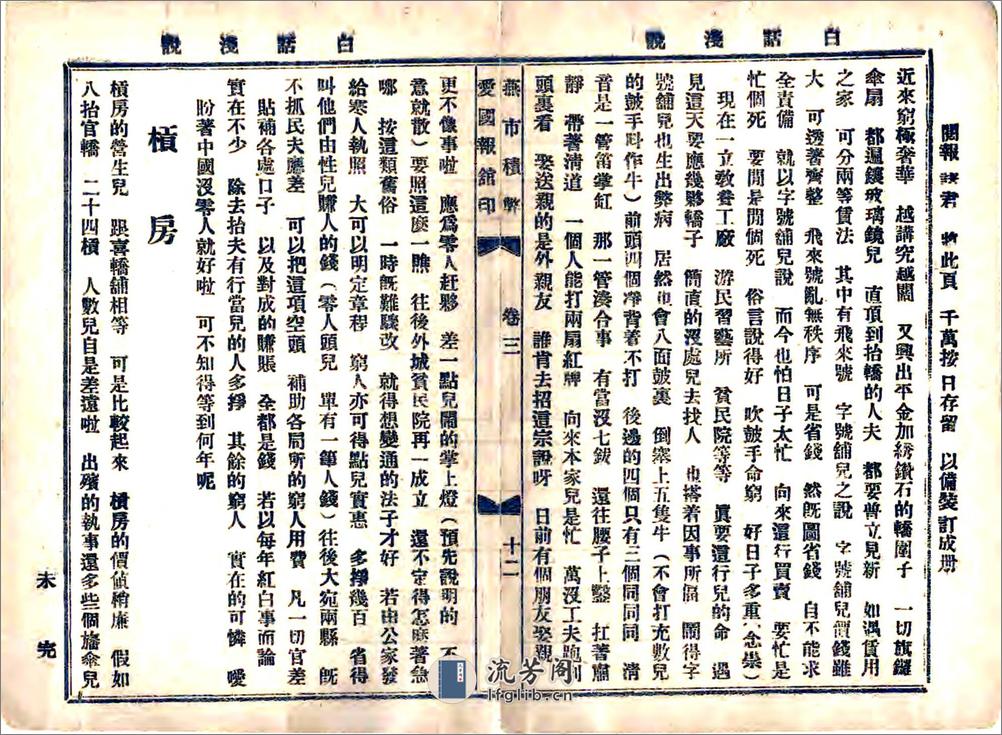 閱報諸君　將此頁　千萬按日存留　以備裝訂成册
白話淺說
近來窮極奢華　越講究越闊　又興出平金加綉鑽石的轎圍子　一切旗鑼
傘扇　都還鑲玻璃鏡兒　直頂到抬轎的人夫　都要普立見新　如遇賃用
之家　可分兩等賃法　其中有飛來號　字號舖兒之說　字號舖兒價錢雖
大　可透著齊整　飛來號亂無秩序　可是省錢　然旣圖省錢　自不能求
全責備　就以字號舖兒說　而今也怕日子太忙　向來這行買賣　要忙是
忙個死　要閒是閒個死　俗言說得好　吹鼓手命窮　好日子多重（念崇）
現在一立敎養工廠　游民習藝所　貧民院等等　眞要這行兒的命　遇
見這天要應幾夥轎子　簡直的沒處兒去找人　也搭着因事所偪　鬧得字
號舖兒也生出弊病　居然也會八面鼓裏　倒塞上五隻牛（不會打充數兒
的鼓手叫作牛）前頭四個凈背着不打　後邊的四個只有三個同同同　淸
音是一管笛掌紅　那一管湊合事　有當沒七鈸　還往腰子上鑿　扛著肅
靜　帶著淸道　一個人能打兩扇紅牌　向來本家兒是忙　萬沒工夫跑到
頭裏看　娶送親的是外親友　誰肯去招這宗說呀　日前有個朋友娶親
燕市積弊　卷三　十二
愛國報舘印
白話淺說
更不像事啦　應爲零人赶夥　差一點兒鬧的掌上燈（預先說明的　不
意就散）要照這麽一瞧　往後外城貧民院再一成立　還不定得怎麽著急
哪　按這類舊俗　一時旣難驟改　就得想變通的法子才好　若由公家發
給寒人執照　大可以明定章程　窮人亦可得點兒實惠　多掙幾百　省得
叫他們由性兒賺人的錢（零人頭兒　單有一筆人錢）往後大宛兩縣　旣
不抓民夫應差　可以把這項空頭　補助各局所的窮人用費　凡一切官差
貼補各處口子　以及對成的賺賬　全都是錢　若以每年紅白事而論
實在不少　除去抬夫有行當兒的人多掙　其餘的窮人　實在的可憐　噯
盼著中國沒零人就好啦　可不知得等到何年呢
槓房
槓房的營生兒　跟喜轎舖相等　可是比較起來　槓房的價値稍廉　假如
八抬官轎　二十四槓　人數兒自是差遠啦　出殯的執事還多些個旛傘兒
未完
流芳阁
lfglib.cn